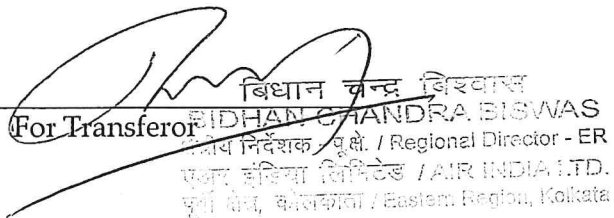 बिधान चन्द्र बिश्वास
For Transferor BIDHAN CHANDRA BISWAS
क्षेत्रीय निर्देशक - पू.क्षे. / Regional Director - ER
एअर इंडिया लिमिटेड / AIR INDIA LTD.
पूर्वी क्षेत्र, कोलकाता / Eastern Region, Kolkata